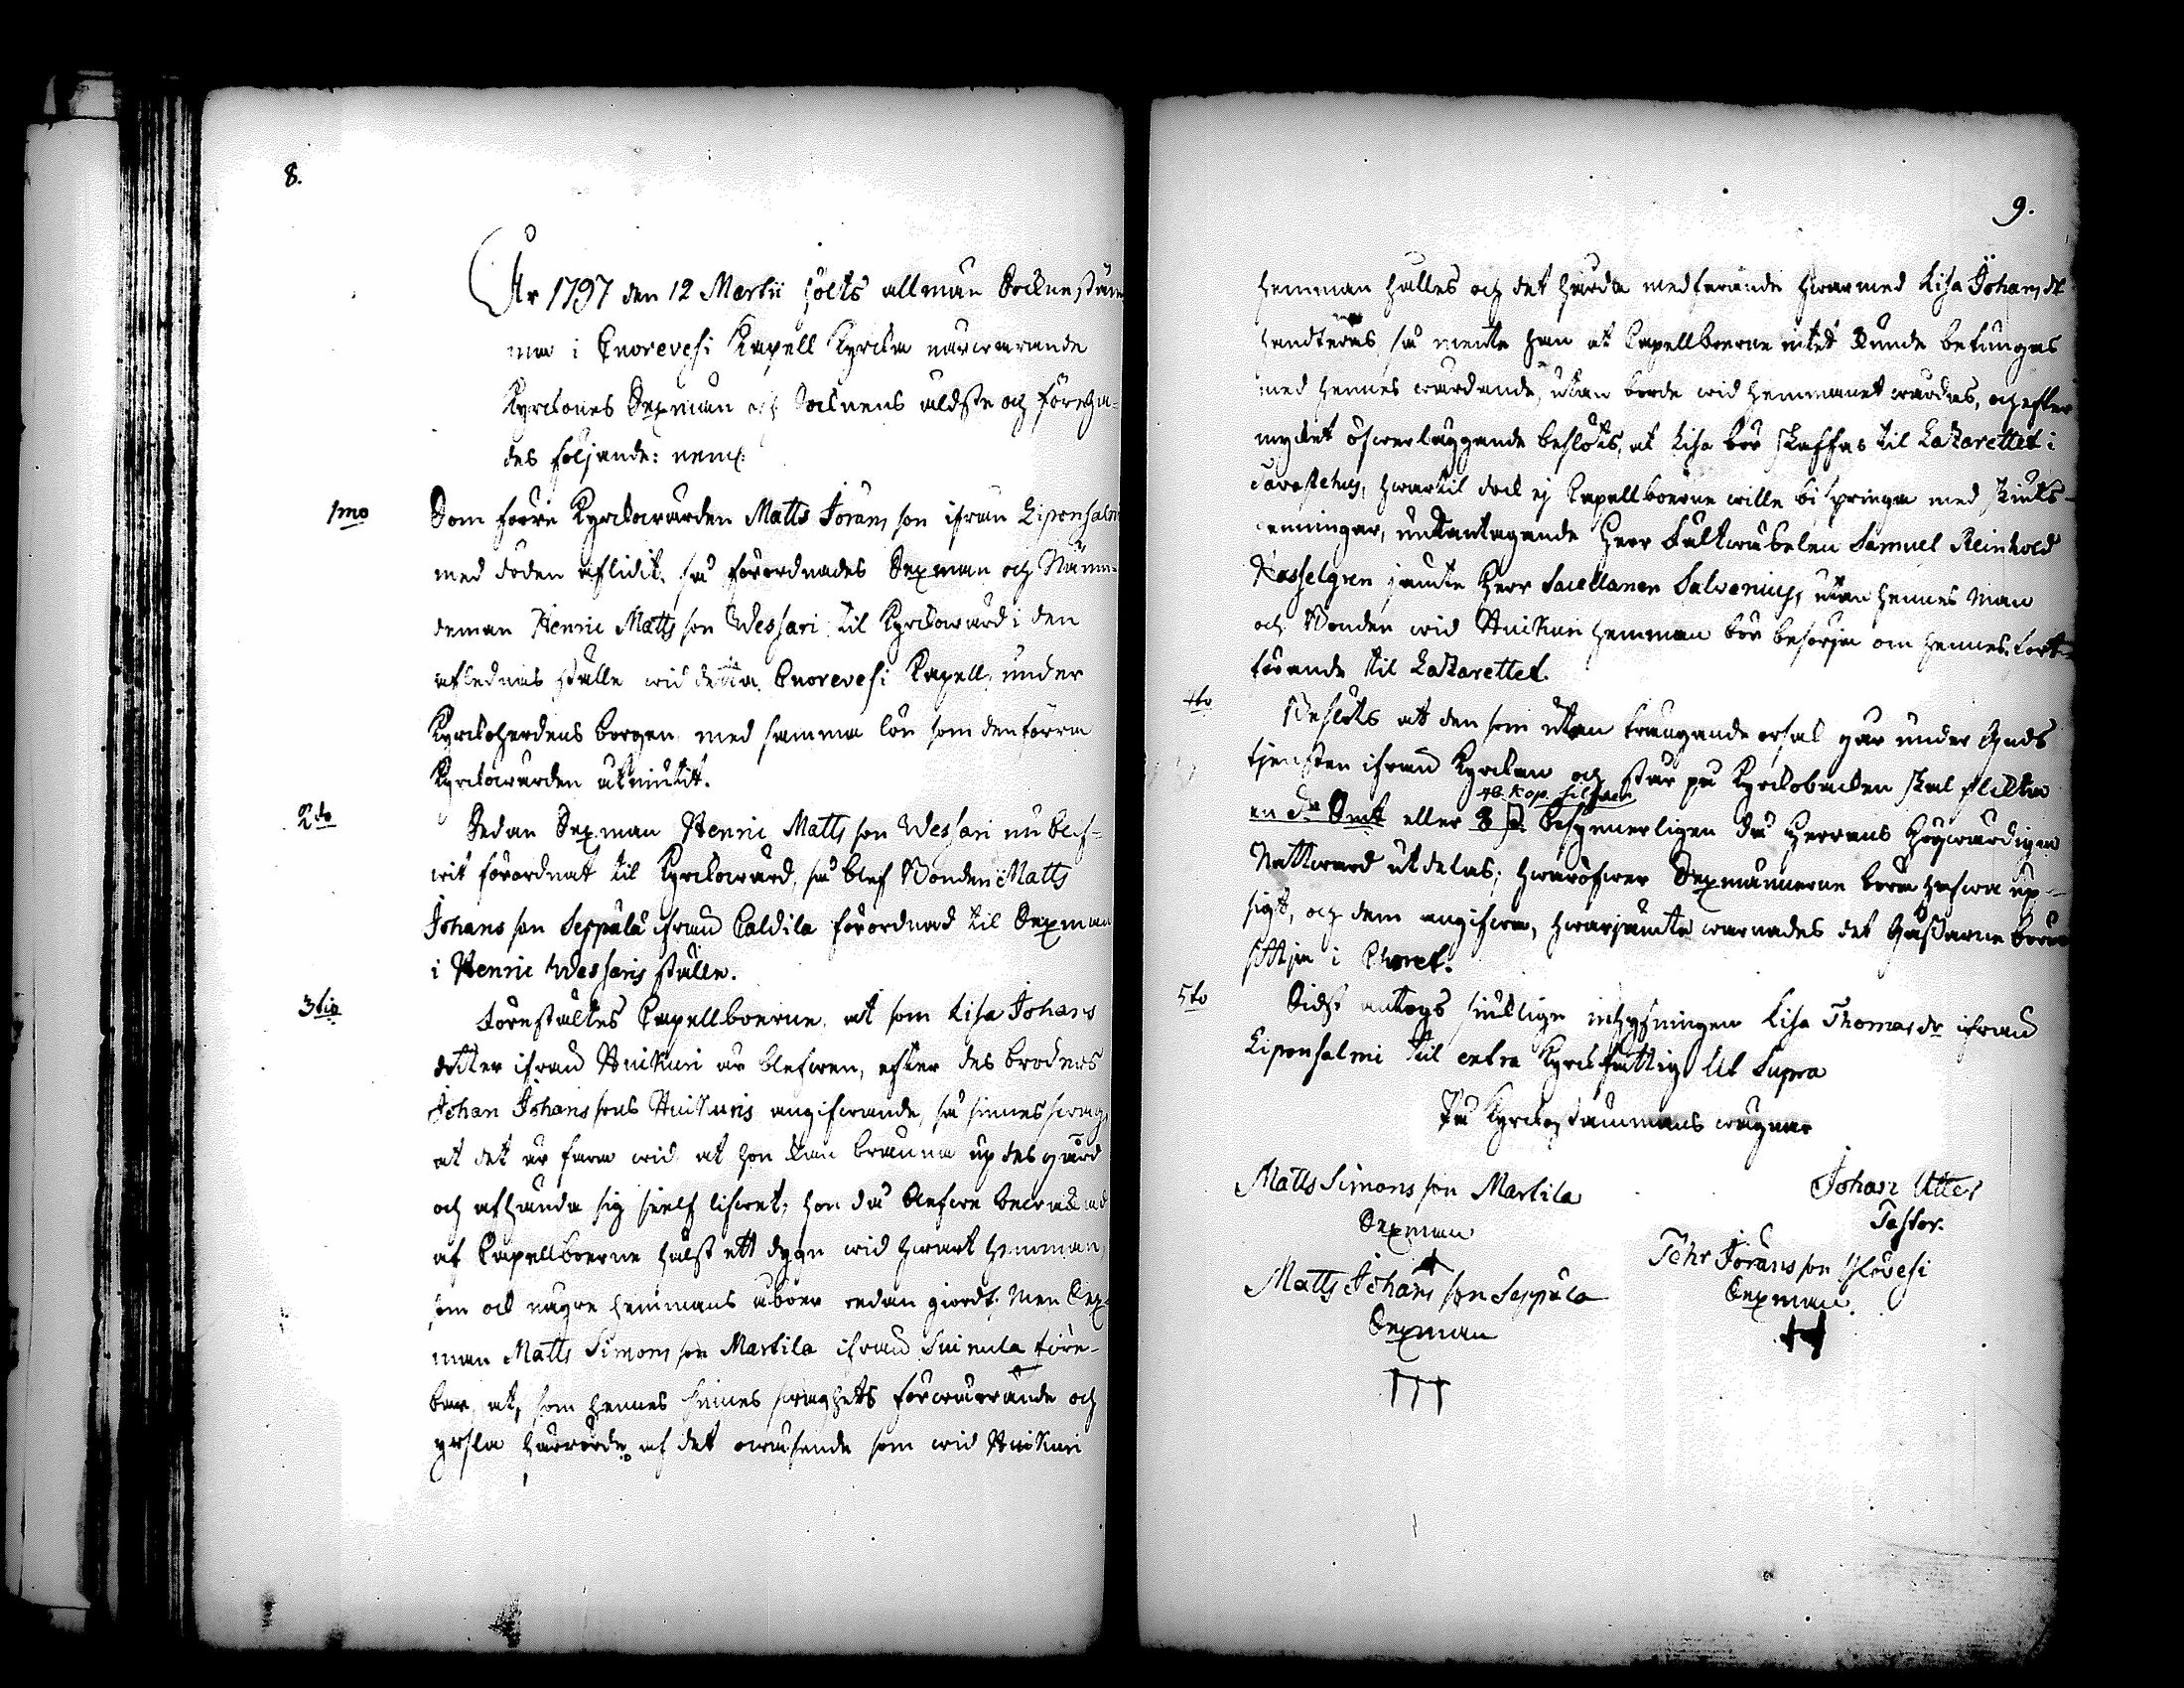 8.
År 1797 den 12 Martii hölts allmän Sockne stäm
ma i Enorevesi Kapell Kyrcka närwarande
Kyrckones Sexmän och Socknens äldste och föreha-
des följande: neml:
1mo Som förre Kyrckowärden Matts Jörans son ifrån Liponsalmi
med döden aflidit, så förordnades Sexman och Nämn-
deman Henric Matts son Wessari til Kyrckowärd i den
aflednas ställe wid detta Enorevesi Kapell, under
Kyrckoherdens borgen, med samma lön som den förra
Kyrckowärden åtniutit.
2do Sedan Sexman Henric Matts son Wessari nu blif-
wit förordnat til Kyrckowärd, så blef Bonden Matts
Johans son Seppälä ifrån Caldila förordnad til Sexman
i Henric Wessaris ställe.
3tio Förestältes Capellboerne, at som Lisa Johans
dotter ifrån Huikuri är blefwen, efter des broders
Johan Johans sons Huikuris angifwande, så sinnes swag,
at det är fara wid at hon kan bränna up des gård
och afhända sig sielf lifwet; hon då blefwe bewakad
af Capellboerne hälst ett dygn wid hwart hemman,
som ock någre hemmans åboer redan giordt. Men Sex-
man Matts Simons son Martila ifrån Suiula före-
bar, at, som hennes sinnes swaghets förwärrande och
yrsla härrörde af det owäsende som wid Huikuri
9.
hemman hålles och det hårda medfarande hwarmed Lisa Johans dr
handteras, så mente han at Capellboerne intet kunde betungas
med hennes wårdande, utan borde wid hemmanet wårdas, och efter
mycket öfwerläggande beslöts, at Lisa bör skaffas til Lazarettet i
Tavastehus, hwartil dock ej Capellboerne wille bispringa med Siuks-
penningar, undantagande Herr Fältwäbelen Samuel Reinhold
Hasselgren jämte Herr Sacellanen Salvenius, utan hennes Man
och Bonden wid Huikuri hemman bör besörja om hennes fort-
förande til Lazarettet.
4to Beslöts att den som utan trängande orsak går under Guds
tjensten ifrån Kyrckan och står på Kyrckobacken skal plickta
48. kop. silfwer
en dr Smt eller 8 ß. besynnerligen då Herrans Högwärdiga
Nattward utdelas; hwaröfwer Sexmännerne böra hafwa up-
sigt, och dem angifwa, hwarjämte warnades det Gåssarne böra
sittja i Choret.
5to Sidst antogs siuklige inhysningen Lisa Thomas dr ifrån
Liponsalmi til extra Kyrckfattig Ut Supra
På Kyrckostämmans wägnar
Matts Simons son Martila
Sexman
Johan Utter
Pastor.
Matts Johans son Seppälä
Sexman
Pehr Jörans son Ylövesi
Sexman.